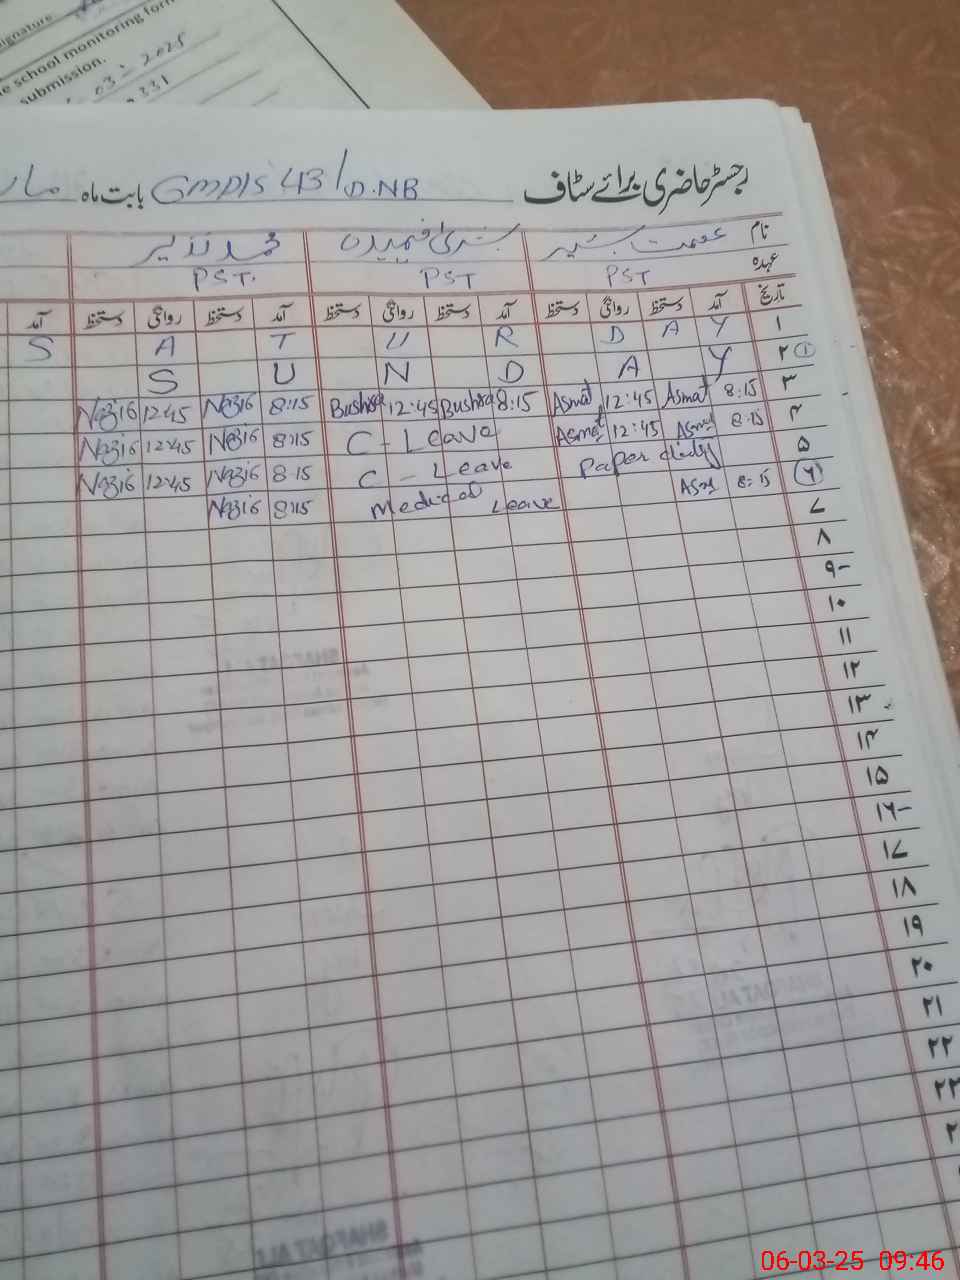 ignature
e school monitoring form
submission.
03-2025
331
رجسٹر حاضری برائے سٹاف GMPS 43/D.NB بابت ماہ
نام عصمت بشیر بشریٰ فہمیدہ محمد نذیر
عہدہ PST PST PST.
تاریخ آمد دستخط روانگی دستخط آمد دستخط روانگی دستخط آمد دستخط روانگی دستخط آمد
۱ S A T U R D A Y
۲ ① S U N D A Y
۳ 8:15 Asmat 12:45 Asmat 8:15 Bushra 12:45 Bushra 8:15 Nazia 12:45 Nazia
۴ 8:15 Asmat 12:45 Asmat C - Leave 8:15 Nazia 12:45 Nazia
۵ Paper duty C - Leave 8:15 Nazia 12:45 Nazia
۶ 8:15 Asmat Medical Leave 8:15 Nazia
۷
۸
۹-
۱۰
۱۱
۱۲
۱۳
۱۴
۱۵
۱۶-
۱۷
۱۸
۱۹
۲۰
۲۱
۲۲
۲۳
06-03-25 09:46